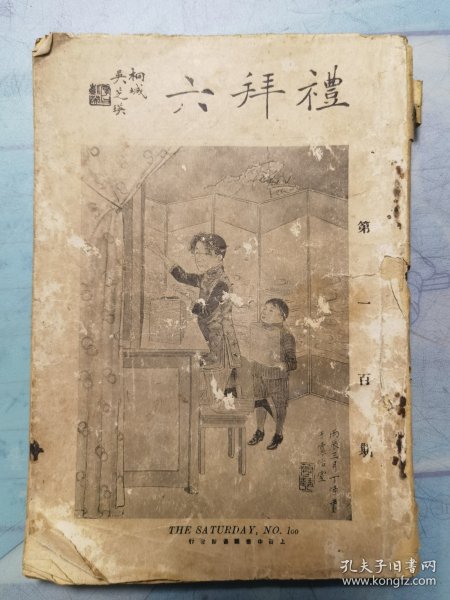 禮拜六
桐城
吳芝瑛
第一百期
丙辰三月丁悚畫
THE SATURDAY, NO. 100
上海中華圖書館發行
孔夫子旧书网
www.kongfz.com